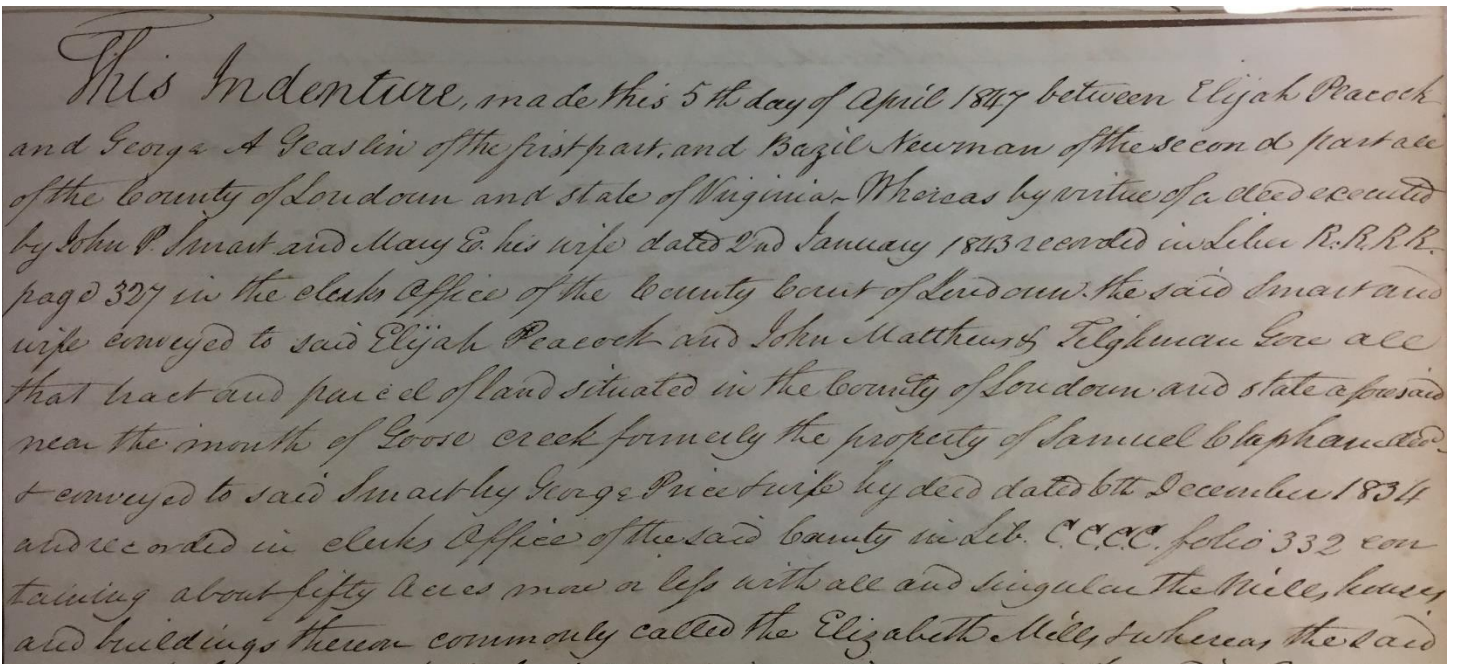 This Indenture, made this 5th day of April 1847 between Elijah Peacock
and George A Geaslin of the first part, and Bazil Newman of the second part all
of the County of Loudoun and state of Virginia - Whereas by virtue of a deed executed
by John P. Smart and Mary E. his wife dated 2nd January 1843 recorded in Liber R.R.R.R.
page 327 in the clerks Office of the County Court of Loudoun. the said Smart and
wife conveyed to said Elijah Peacock and John Matthews & Tilghman Gore all
that tract and parcel of land situated in the County of Loudoun and state aforesaid
near the mouth of Goose creek formerly the property of Samuel Clapham decd,
& conveyed to said Smart by George Price & wife by deed dated 6th December 1834
and recorded in clerks Office of the said County in Lib. C.C.C.C. folio 332 con
taining about fifty Acres more or less with all and singular the Mills, houses
and buildings thereon commonly called the Elizabeth Mills & whereas the said